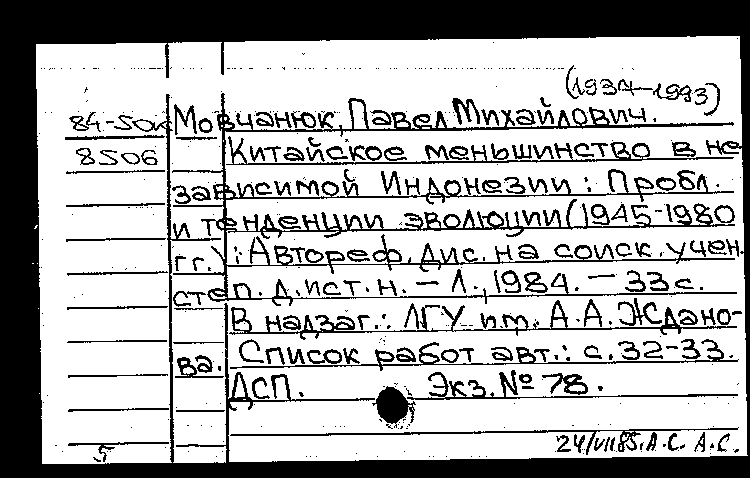 (1937-1993)
84-50к Мовчанюк, Павел Михайлович.
8506 Китайское меньшинство в не
зависимой Индонезии : Пробл.
и тенденции эволюции (1945-1980
гг.) : Автореф. дис. на соиск. учен.
степ. д. ист. н. — Л., 1984. — 33 с.
В надзаг.: ЛГУ им. А.А. Ждано-
ва. Список работ авт.: с. 32-33.
ДСП. Экз. № 78.
24/VII85. А.С. А.С.
5